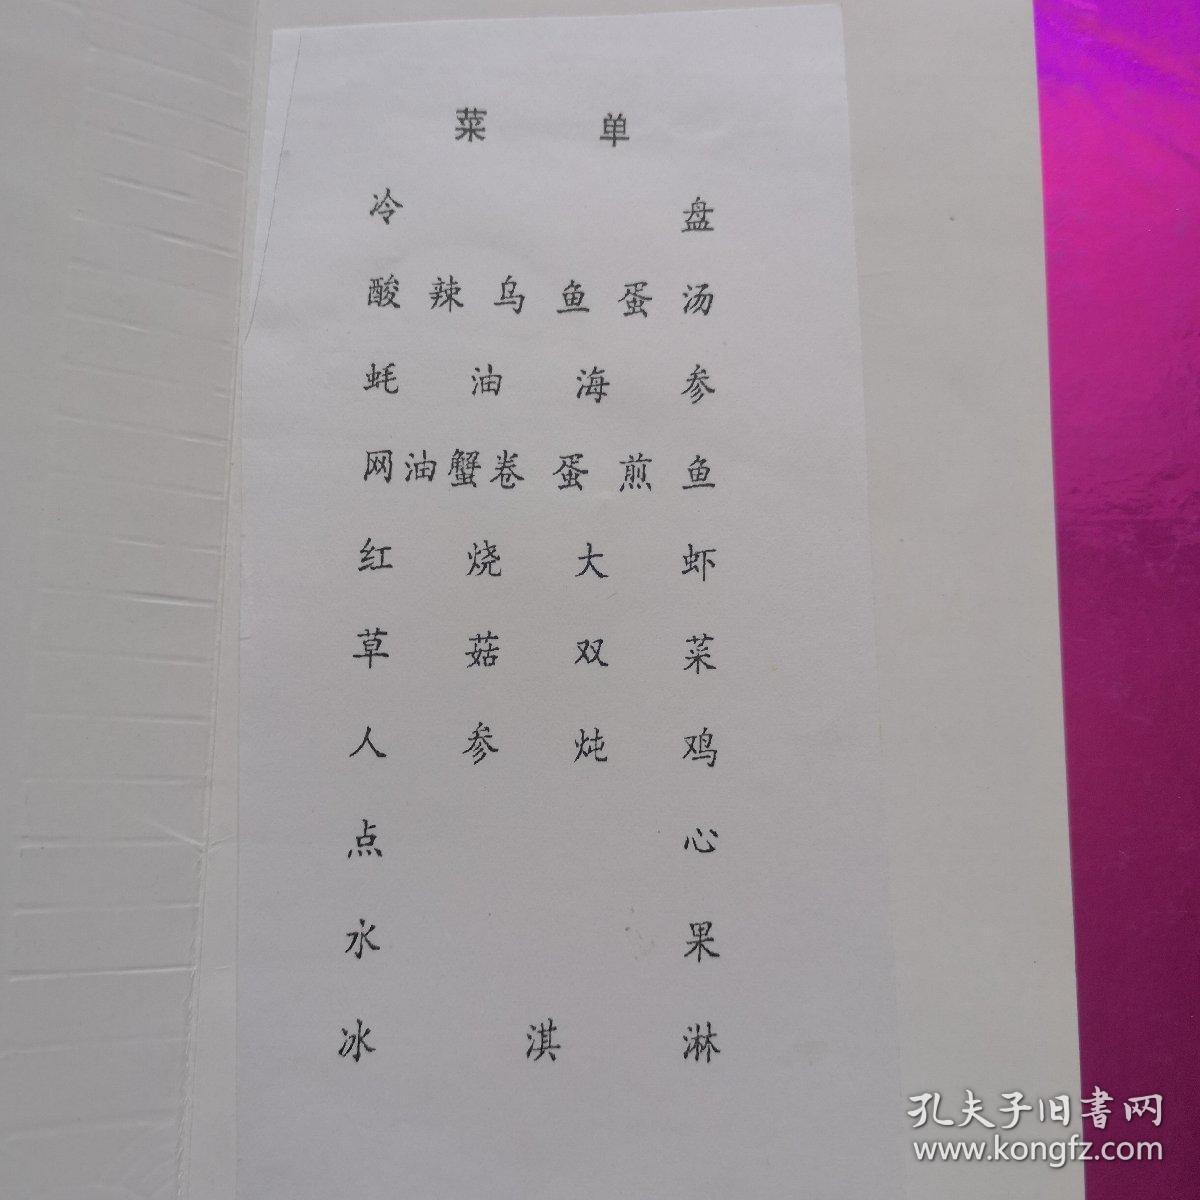 菜单
冷盘
酸辣乌鱼蛋汤
蚝油海参
网油蟹卷 蛋煎鱼
红烧大虾
草菇双菜
人参炖鸡
点心
水果
冰淇淋
孔夫子旧書网
www.kongfz.com